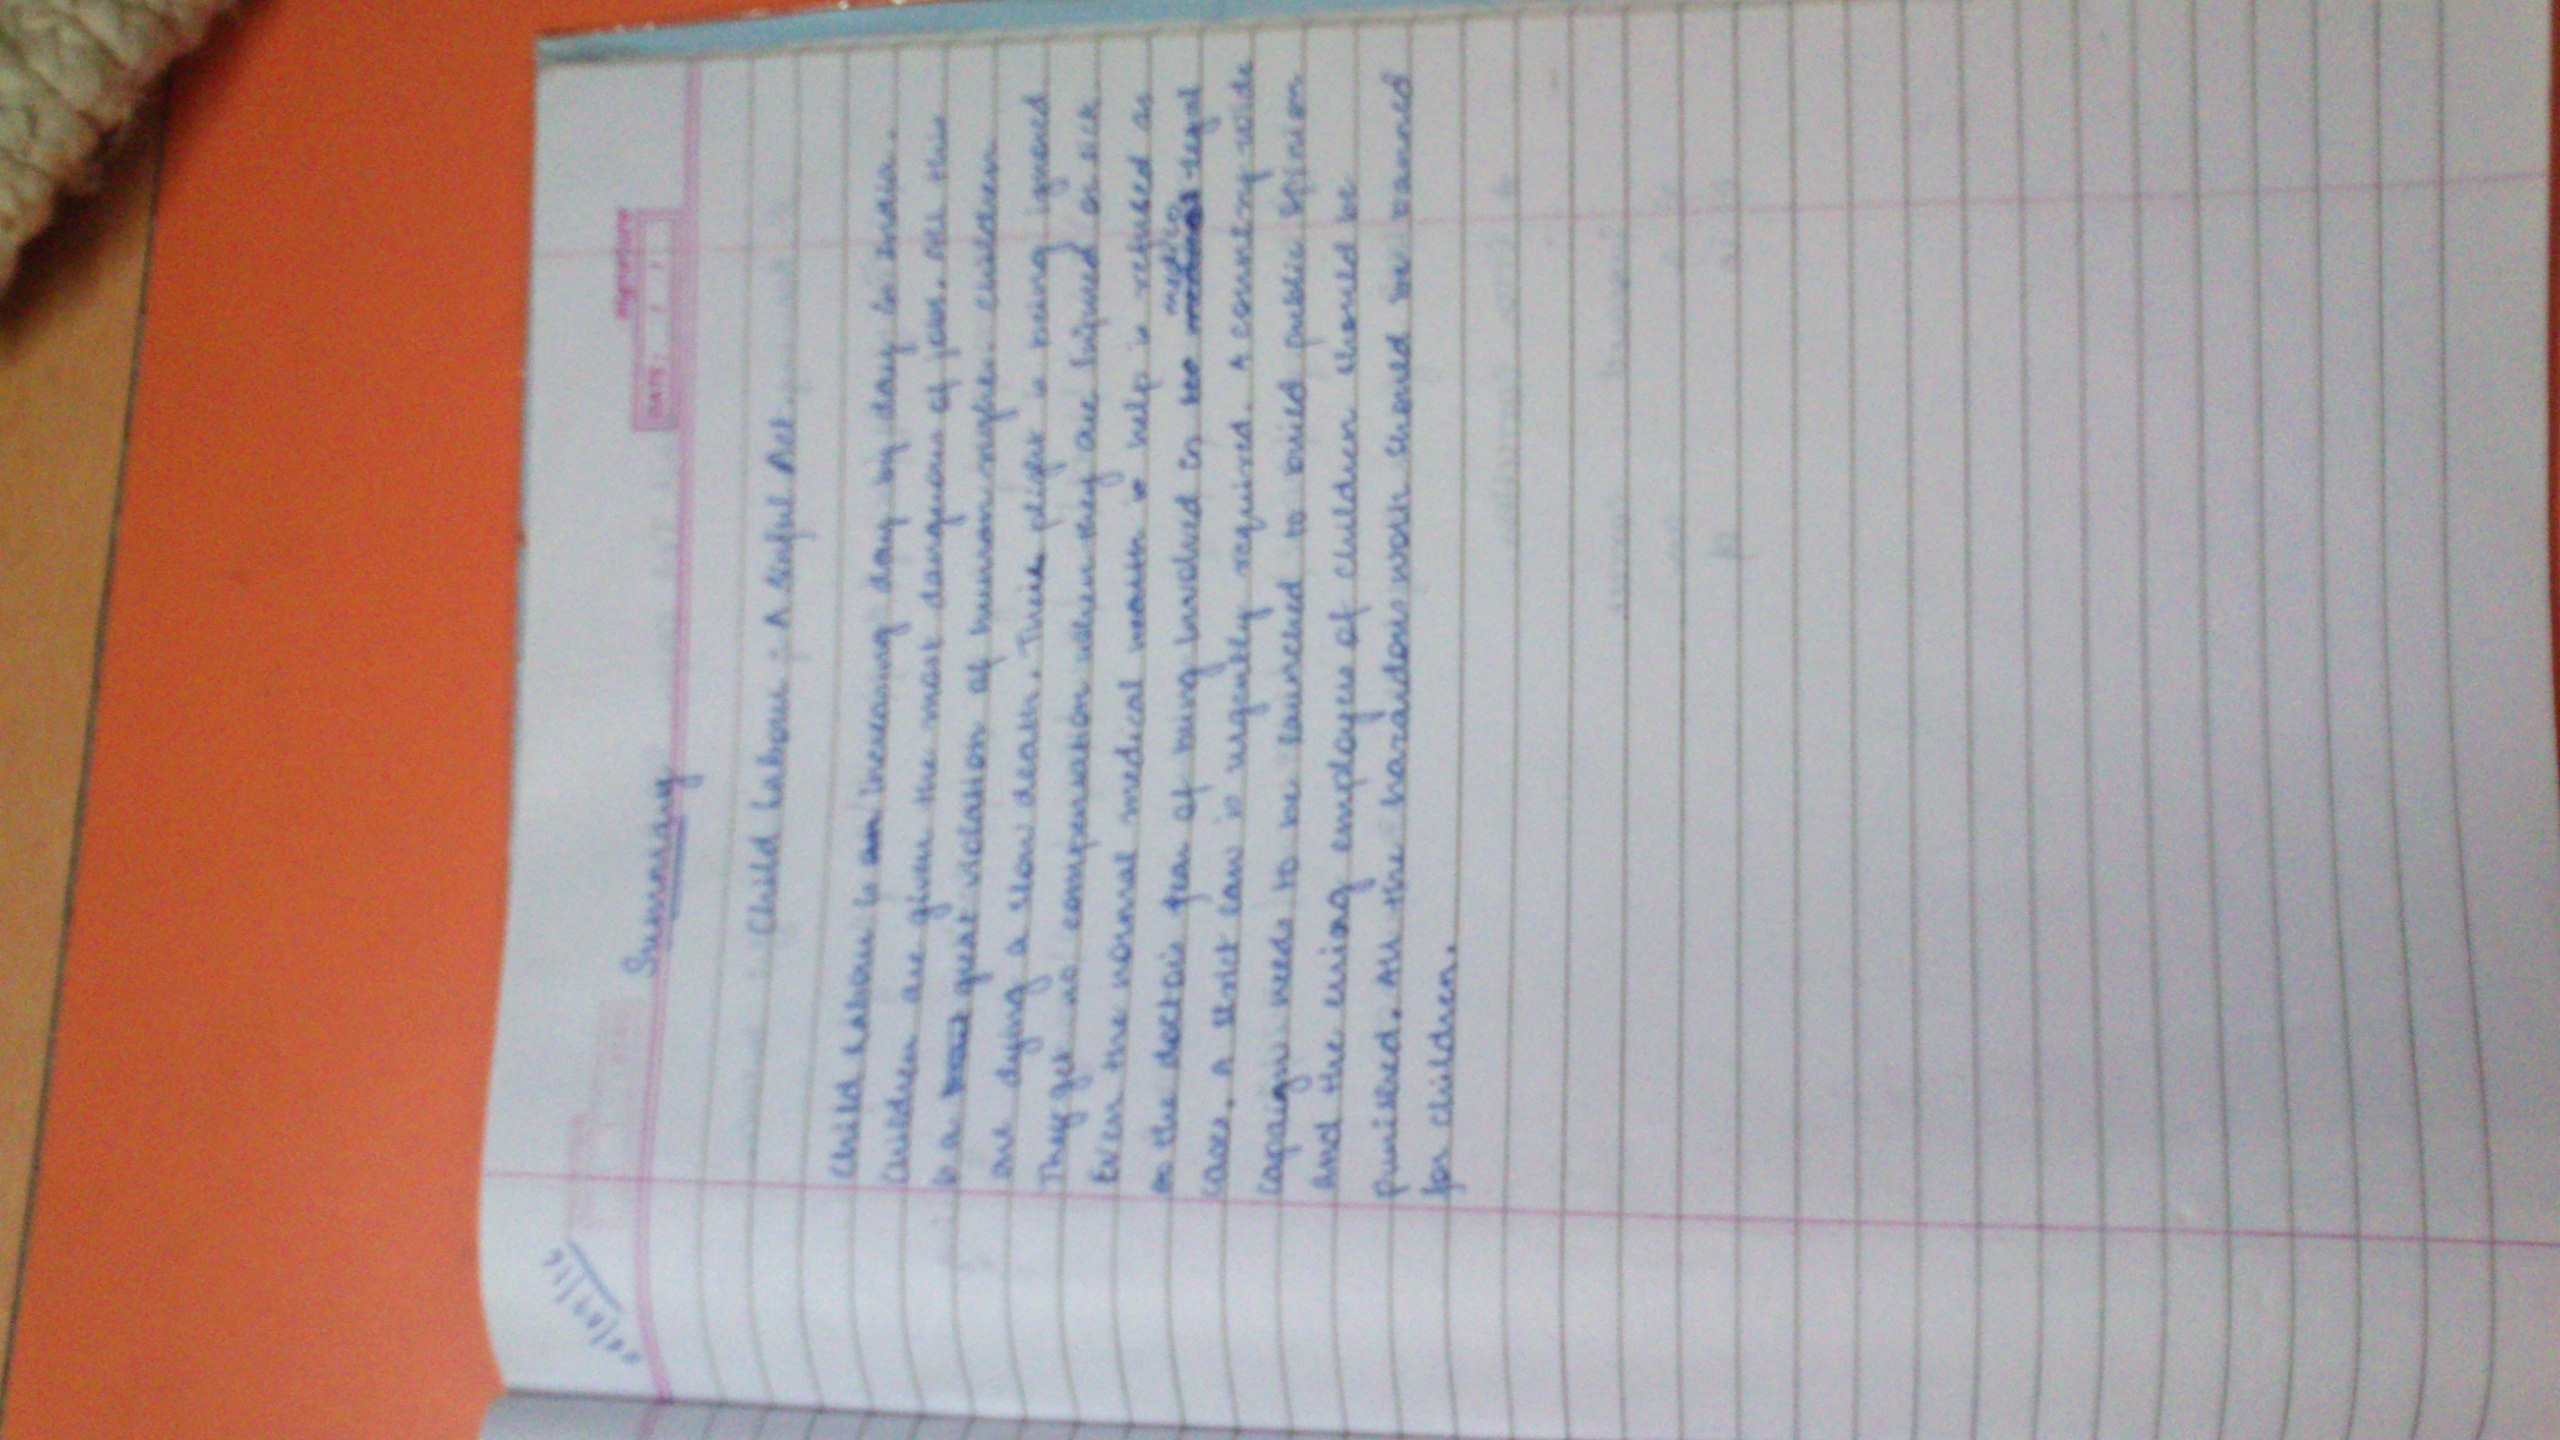 Summary
signature
DATE: / /
Child Labour : A Sinful Act.
Child Labour is an increasing day by day in India.
Children are given the most dangerous of jobs. All this
is a great violation of human rights. Children
are dying a slow death. Their plight is being ignored.
They get no compensation when they are injured or sick
Even the normal medical health is help is refused as
as the doctors fear of being involved in medico legal
cases. A strict law is urgently required. A country wide
capaign needs to be launched to build public opinion
and the erring employers of children should be
punished. All the hazardous work should be banned
for children.